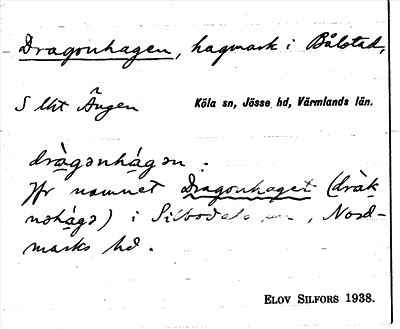 Dragonhagen, hagmark i Bålstad,
S lht Ängen Köla sn, Jösse hd, Värmlands län.
dràgǝnhágǝn.
Jfr namnet Dragonhaget (dràk-
nǝhágǝ) i Silbodals sn, Nord-
marks hd.
ELOV SILFORS 1938.